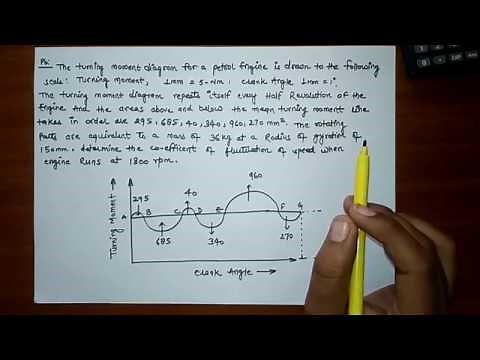 Pb: The turning moment diagram for a petrol Engine is drawn to the following
scale: Turning moment, 1mm = 5-Nm; crank Angle 1mm = 1°
The turning moment diagram repeats itself every Half Revolution of the
Engine and the areas above and below the mean turning moment line
taken in order are 295, 685, 40, 340, 960, 270 mm². The rotating
parts are equivalent to a mass of 36kg at a Radius of gyration of
150mm. determine the co-efficent of fluctuation of speed when
engine Runs at 1800 rpm.
960
295
40
A B C D E F G
685
340
270
Turning Moment
Crank Angle